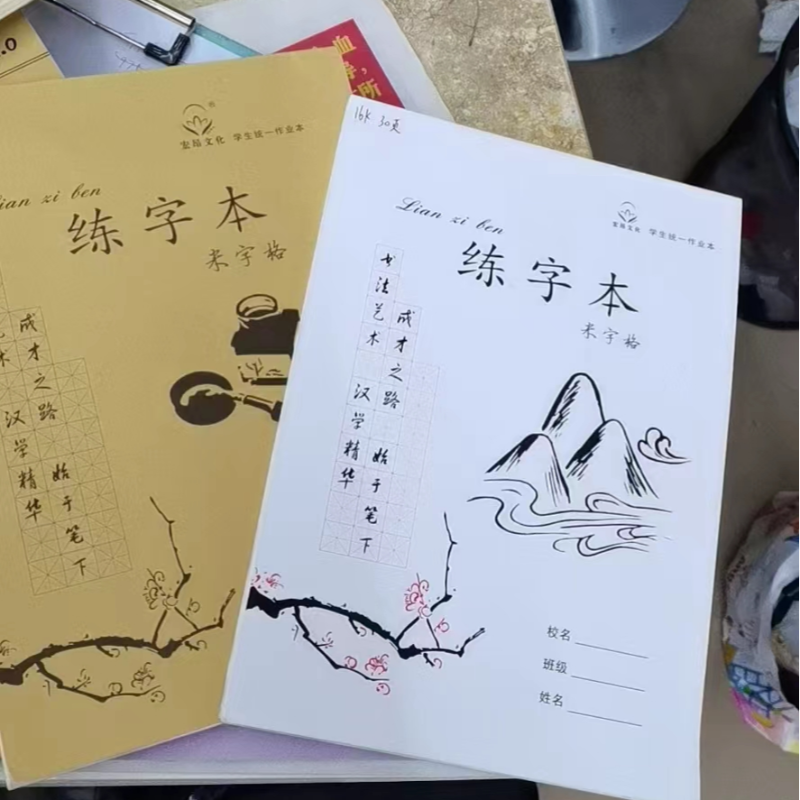 .0
血
所
学生统一作业本
Lian zi ben
练字本
米字格
术 汉学精华
成才之路 始于笔下
16K 30页
学生统一作业本
Lian zi ben
练字本
米字格
书法艺术 汉学精华
成才之路 始于笔下
校名
班级
姓名